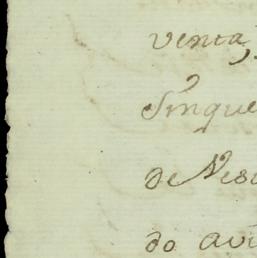 venta,
Sinque
de Nesi
do avi